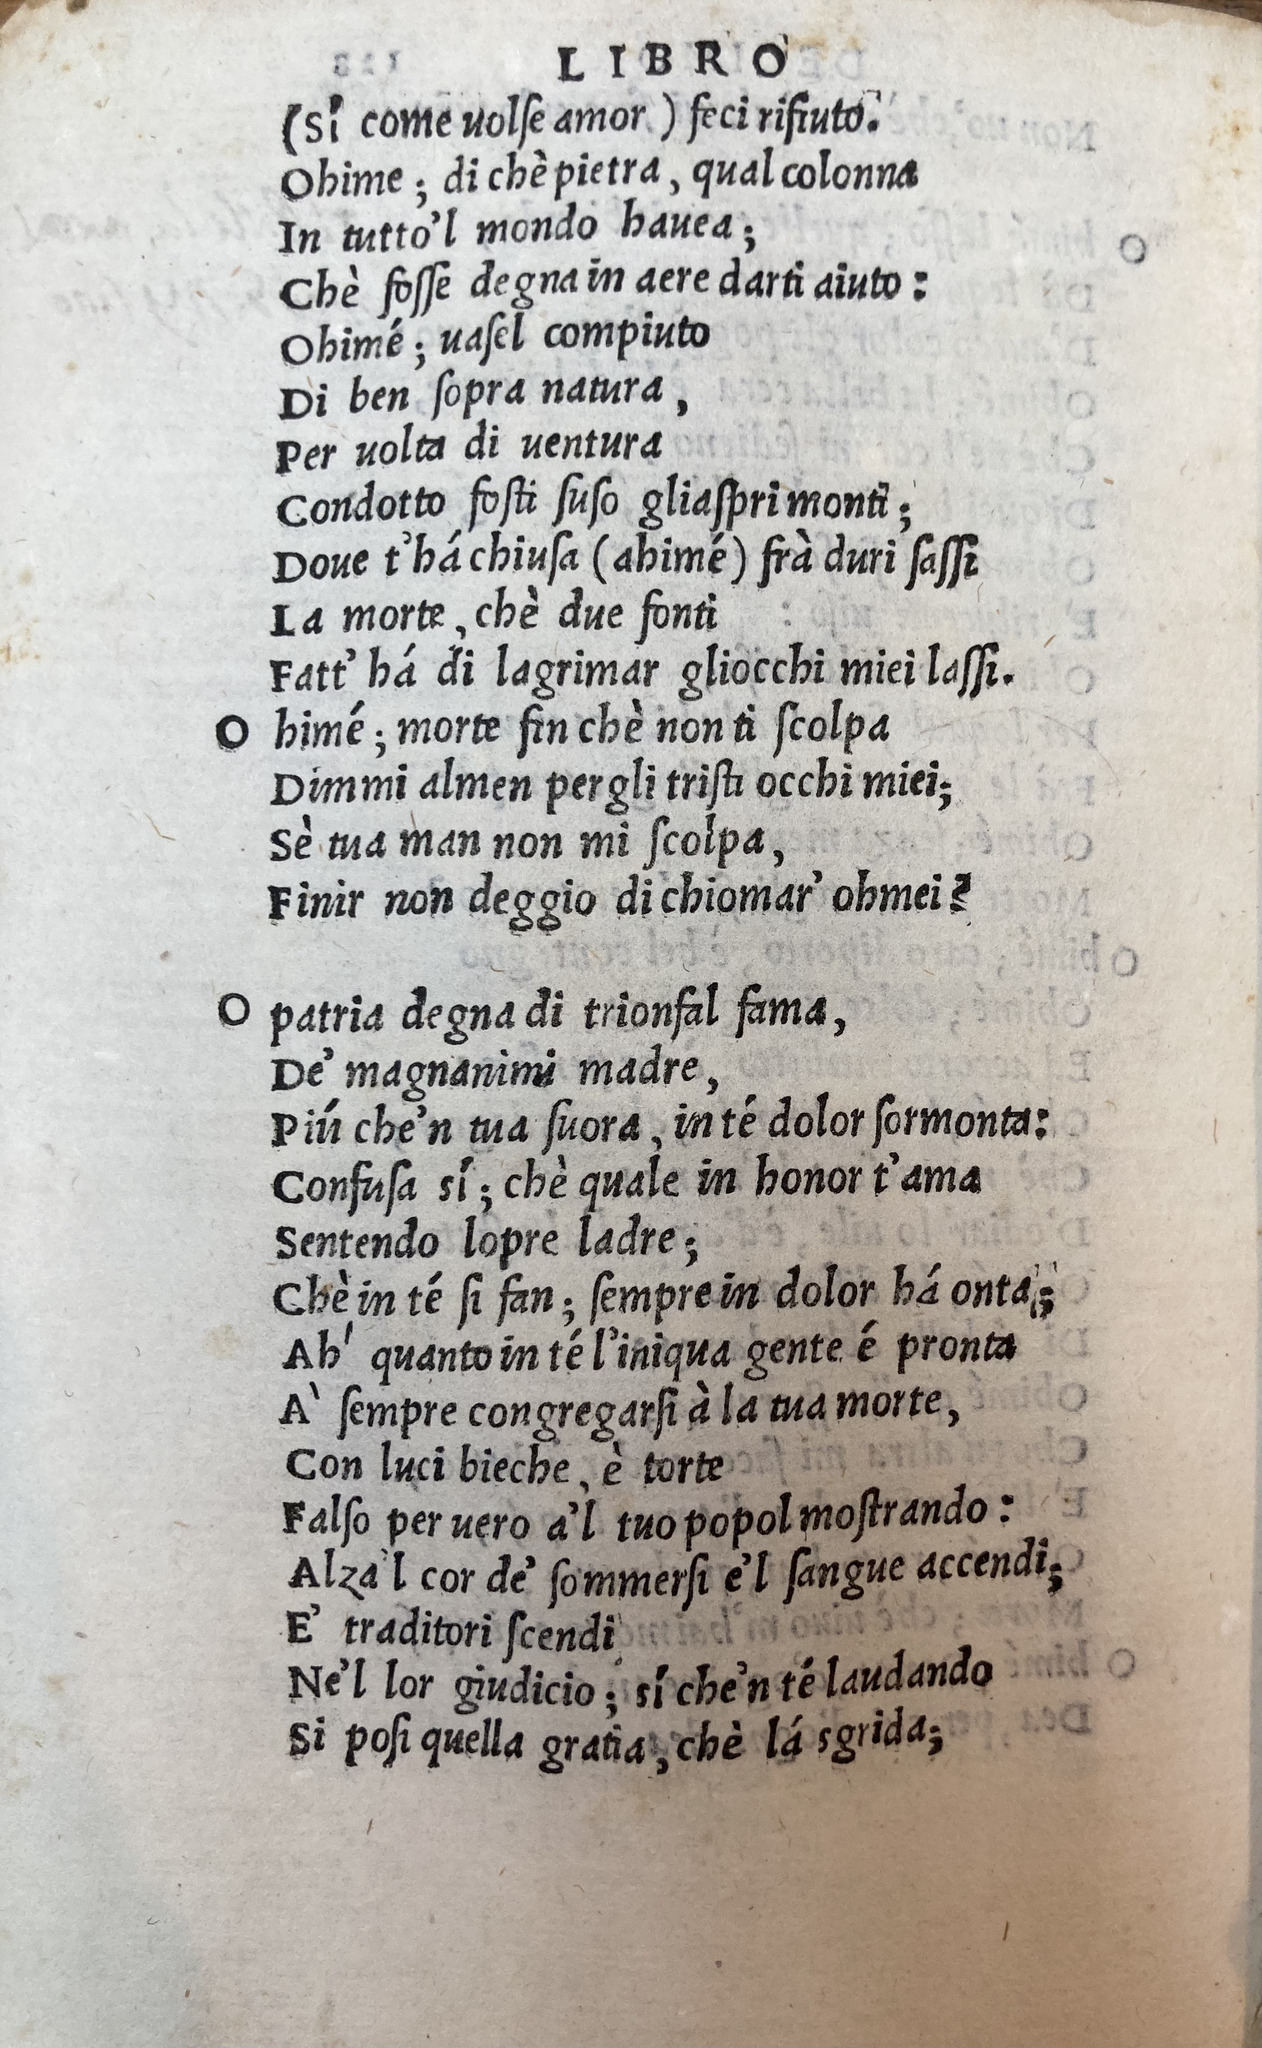 LIBRO
(Sí come uolſe amor) feci rifiuto.
Ohime; di chè pietra, qual colonna
In tutto'l mondo hauea;
Chè foſſe degna in aere darti aiuto:
Ohimé; uaſel compiuto
Di ben ſopra natura,
Per uolta di uentura
Condotto foſti ſuſo gliaſpri monti;
Doue t'há chiuſa (ahimé) frà duri ſaſſi
La morte, chè due fonti
Fatt' há di lagrimar gliocchi miei laſſi.
O himé; morte fin chè non ti ſcolpa
Dimmi almen per gli triſti occhi miei;
Sè tua man non mi ſcolpa,
Finir non deggio di chiomar' ohmei?
O patria degna di trionfal fama,
De' magnanimi madre,
Piú che'n tua ſuora, in té dolor ſormonta:
Confuſa sí; chè quale in honor t'ama
Sentendo lopre ladre;
Chè in té ſi fan; ſempre in dolor há onta;
Ah' quanto in té l'iniqua gente é pronta
A' ſempre congregarſi à la tua morte,
Con luci bieche, è torte
Falſo per uero a'l tuo popol moſtrando:
Alza'l cor de' ſommerſi e'l ſangue accendi;
E' traditori ſcendi
Ne'l lor giudicio; sí che'n té laudando
Si poſi quella gratia, chè lá sgrida;